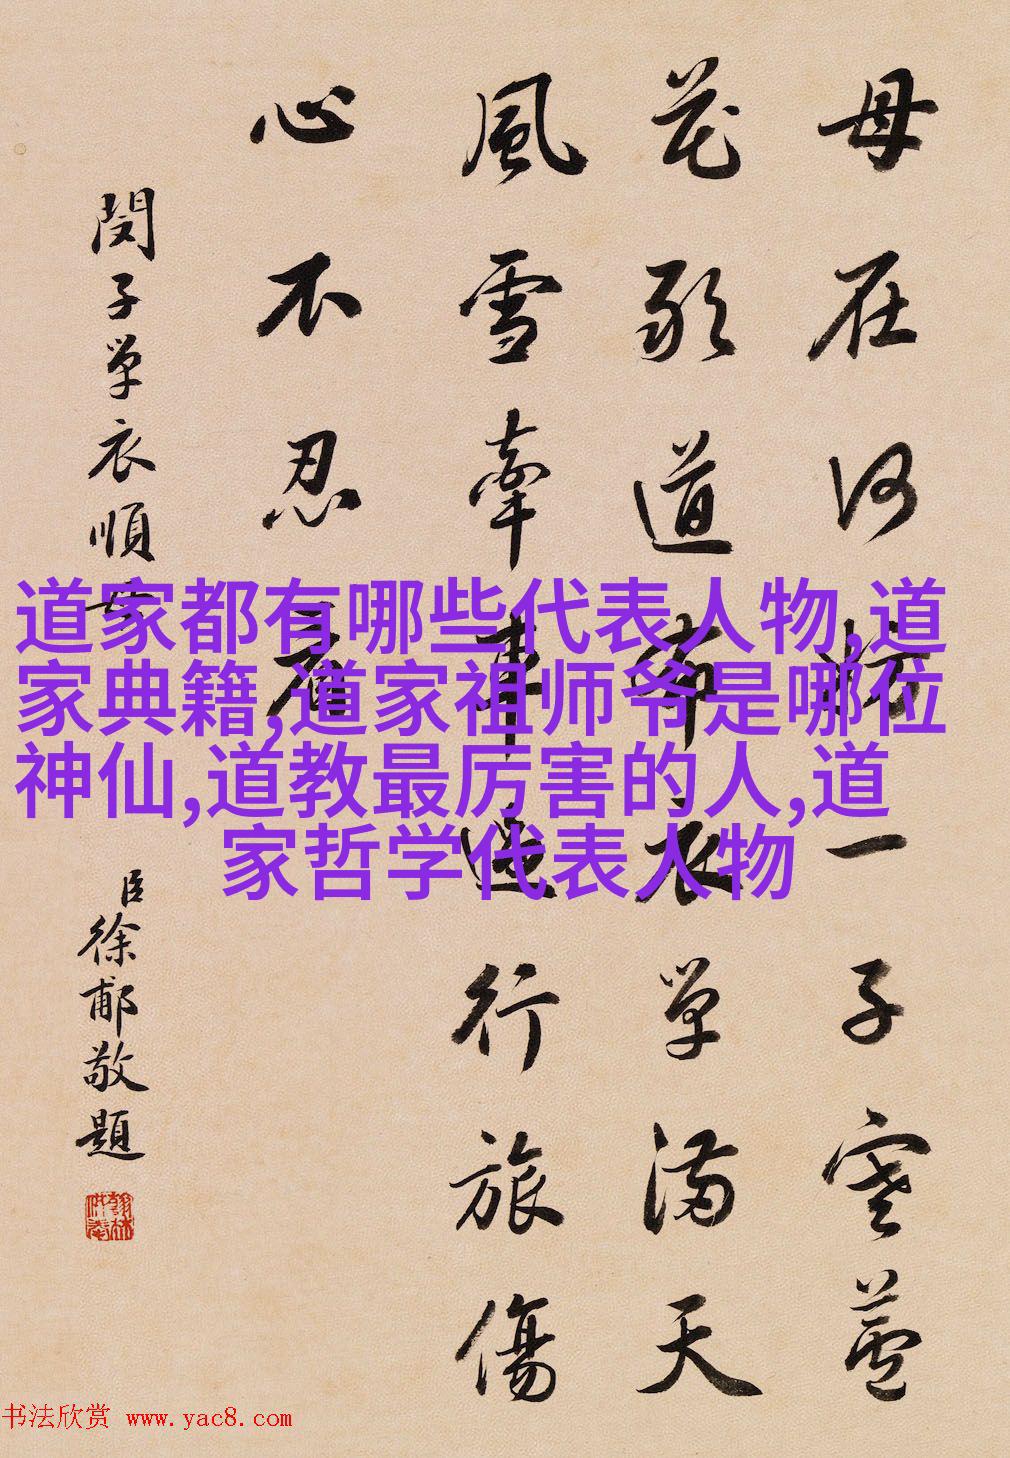 母在何妨一子寒蘆
花歌道布衣单滿天
風雪牽車還行旅傷
心不忍看
閔子单衣順母
臣徐郙敬題
道家都有哪些代表人物,道
家典籍,道家祖师爷是哪位
神仙,道教最厉害的人,道
家哲学代表人物
书法欣赏 www.yac8.com